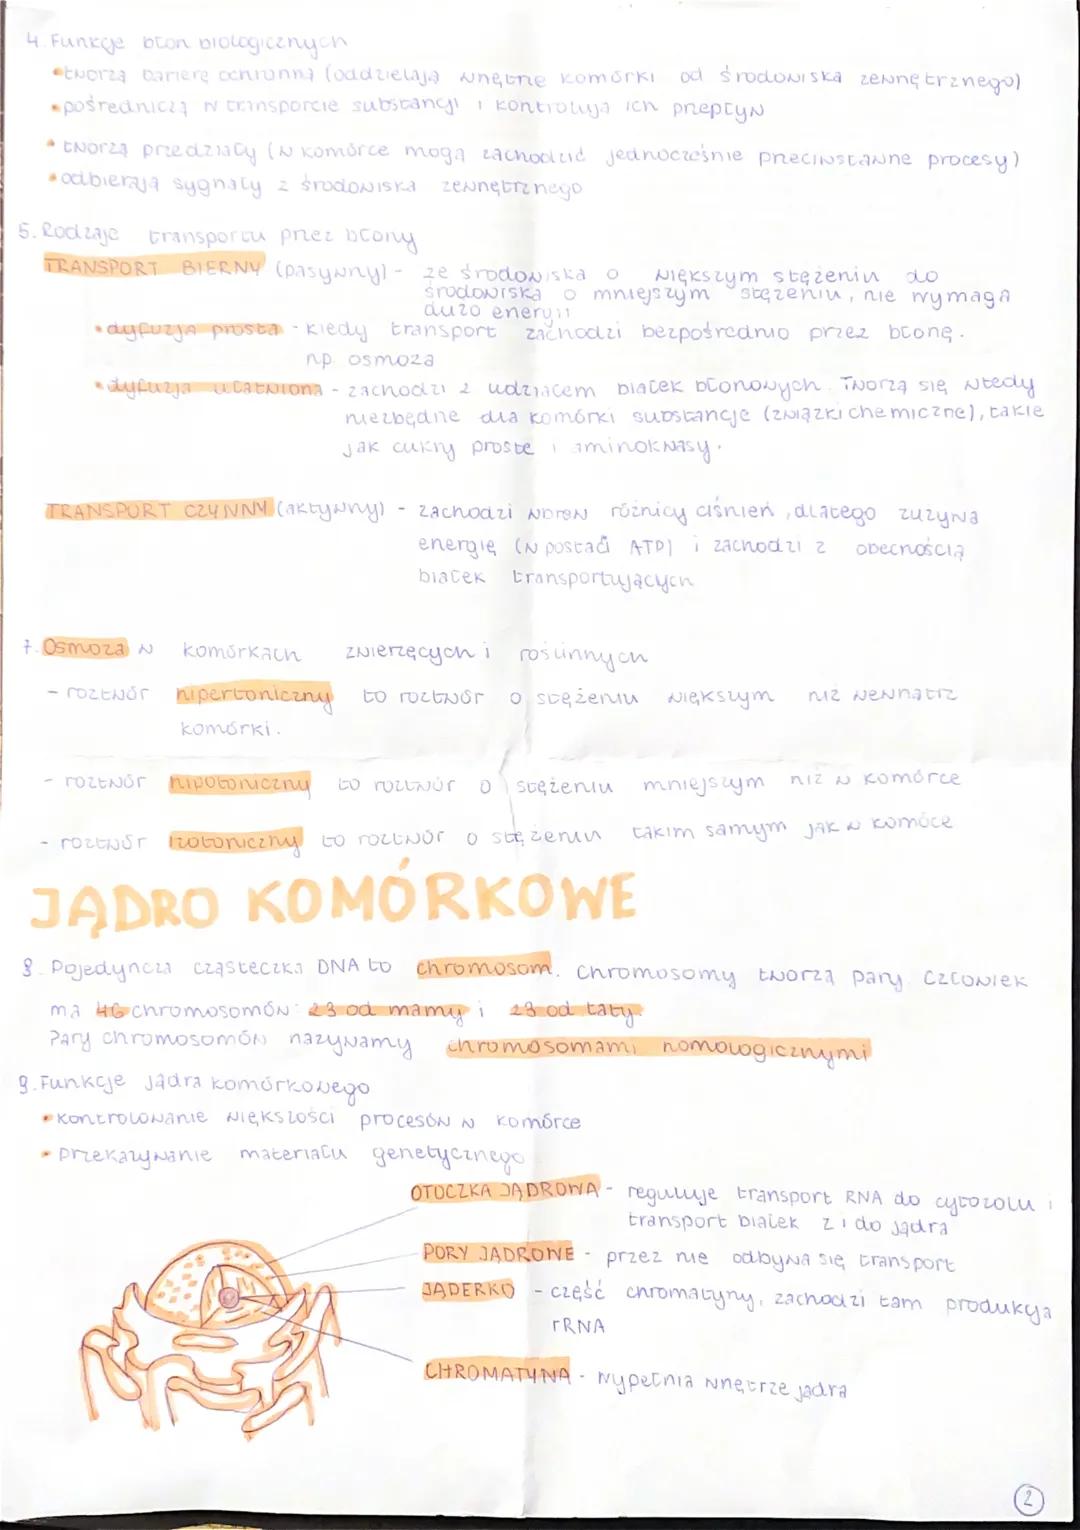 4. Funkcje błon biologicznych
•tworzą barierę ochronną (oddzielają wnętrze komórki od środowiska zewnętrznego)
•pośredniczą w transporcie substancji i kontrolują ich przepływ
•tworzą przedziały (w komórce mogą zachodzić jednocześnie przeciwstawne procesy)
•odbierają sygnały z środowiska zewnętrznego
5. Rodzaje transportu przez błony
TRANSPORT BIERNY (pasywny) - ze środowiska o większym stężeniu do
środowiska o mniejszym stężeniu, nie wymaga
dużo energii
•dyfuzja prosta - kiedy transport zachodzi bezpośrednio przez błonę.
np. osmoza
•dyfuzja ułatwiona - zachodzi z udziałem białek błonowych. Tworzą się wtedy
niezbędne dla komórki substancje (związki chemiczne), takie
jak cukry proste i aminokwasy.
TRANSPORT CZYNNY (aktywny) - zachodzi wbrew różnicy ciśnień, dlatego zużywa
energię (w postaci ATP) i zachodzi z obecnością
białek transportujących
7. Osmoza w komórkach zwierzęcych i roślinnych
- roztwór hipertoniczny to roztwór o stężeniu większym niż wewnątrz
komórki.
- roztwór hipotoniczny to roztwór o stężeniu mniejszym niż w komórce
- roztwór izotoniczny to roztwór o stężeniu takim samym jak w komóce
JĄDRO KOMÓRKOWE
8. Pojedyncza cząsteczka DNA to chromosom. Chromosomy tworzą pary. Człowiek
ma 46 chromosomów: 23 od mamy i 23 od taty.
Pary chromosomów nazywamy chromosomami homologicznymi
9. Funkcje jądra komórkowego
•kontrolowanie większości procesów w komórce
•przekazywanie materiału genetycznego
OTOCZKA JĄDROWA - reguluje transport RNA do cytozolu i
transport białek z i do jądra
PORY JĄDROWE - przez nie odbywa się transport
JĄDERKO - część chromatyny, zachodzi tam produkcja
rRNA
CHROMATYNA - wypełnia wnętrze jądra
2